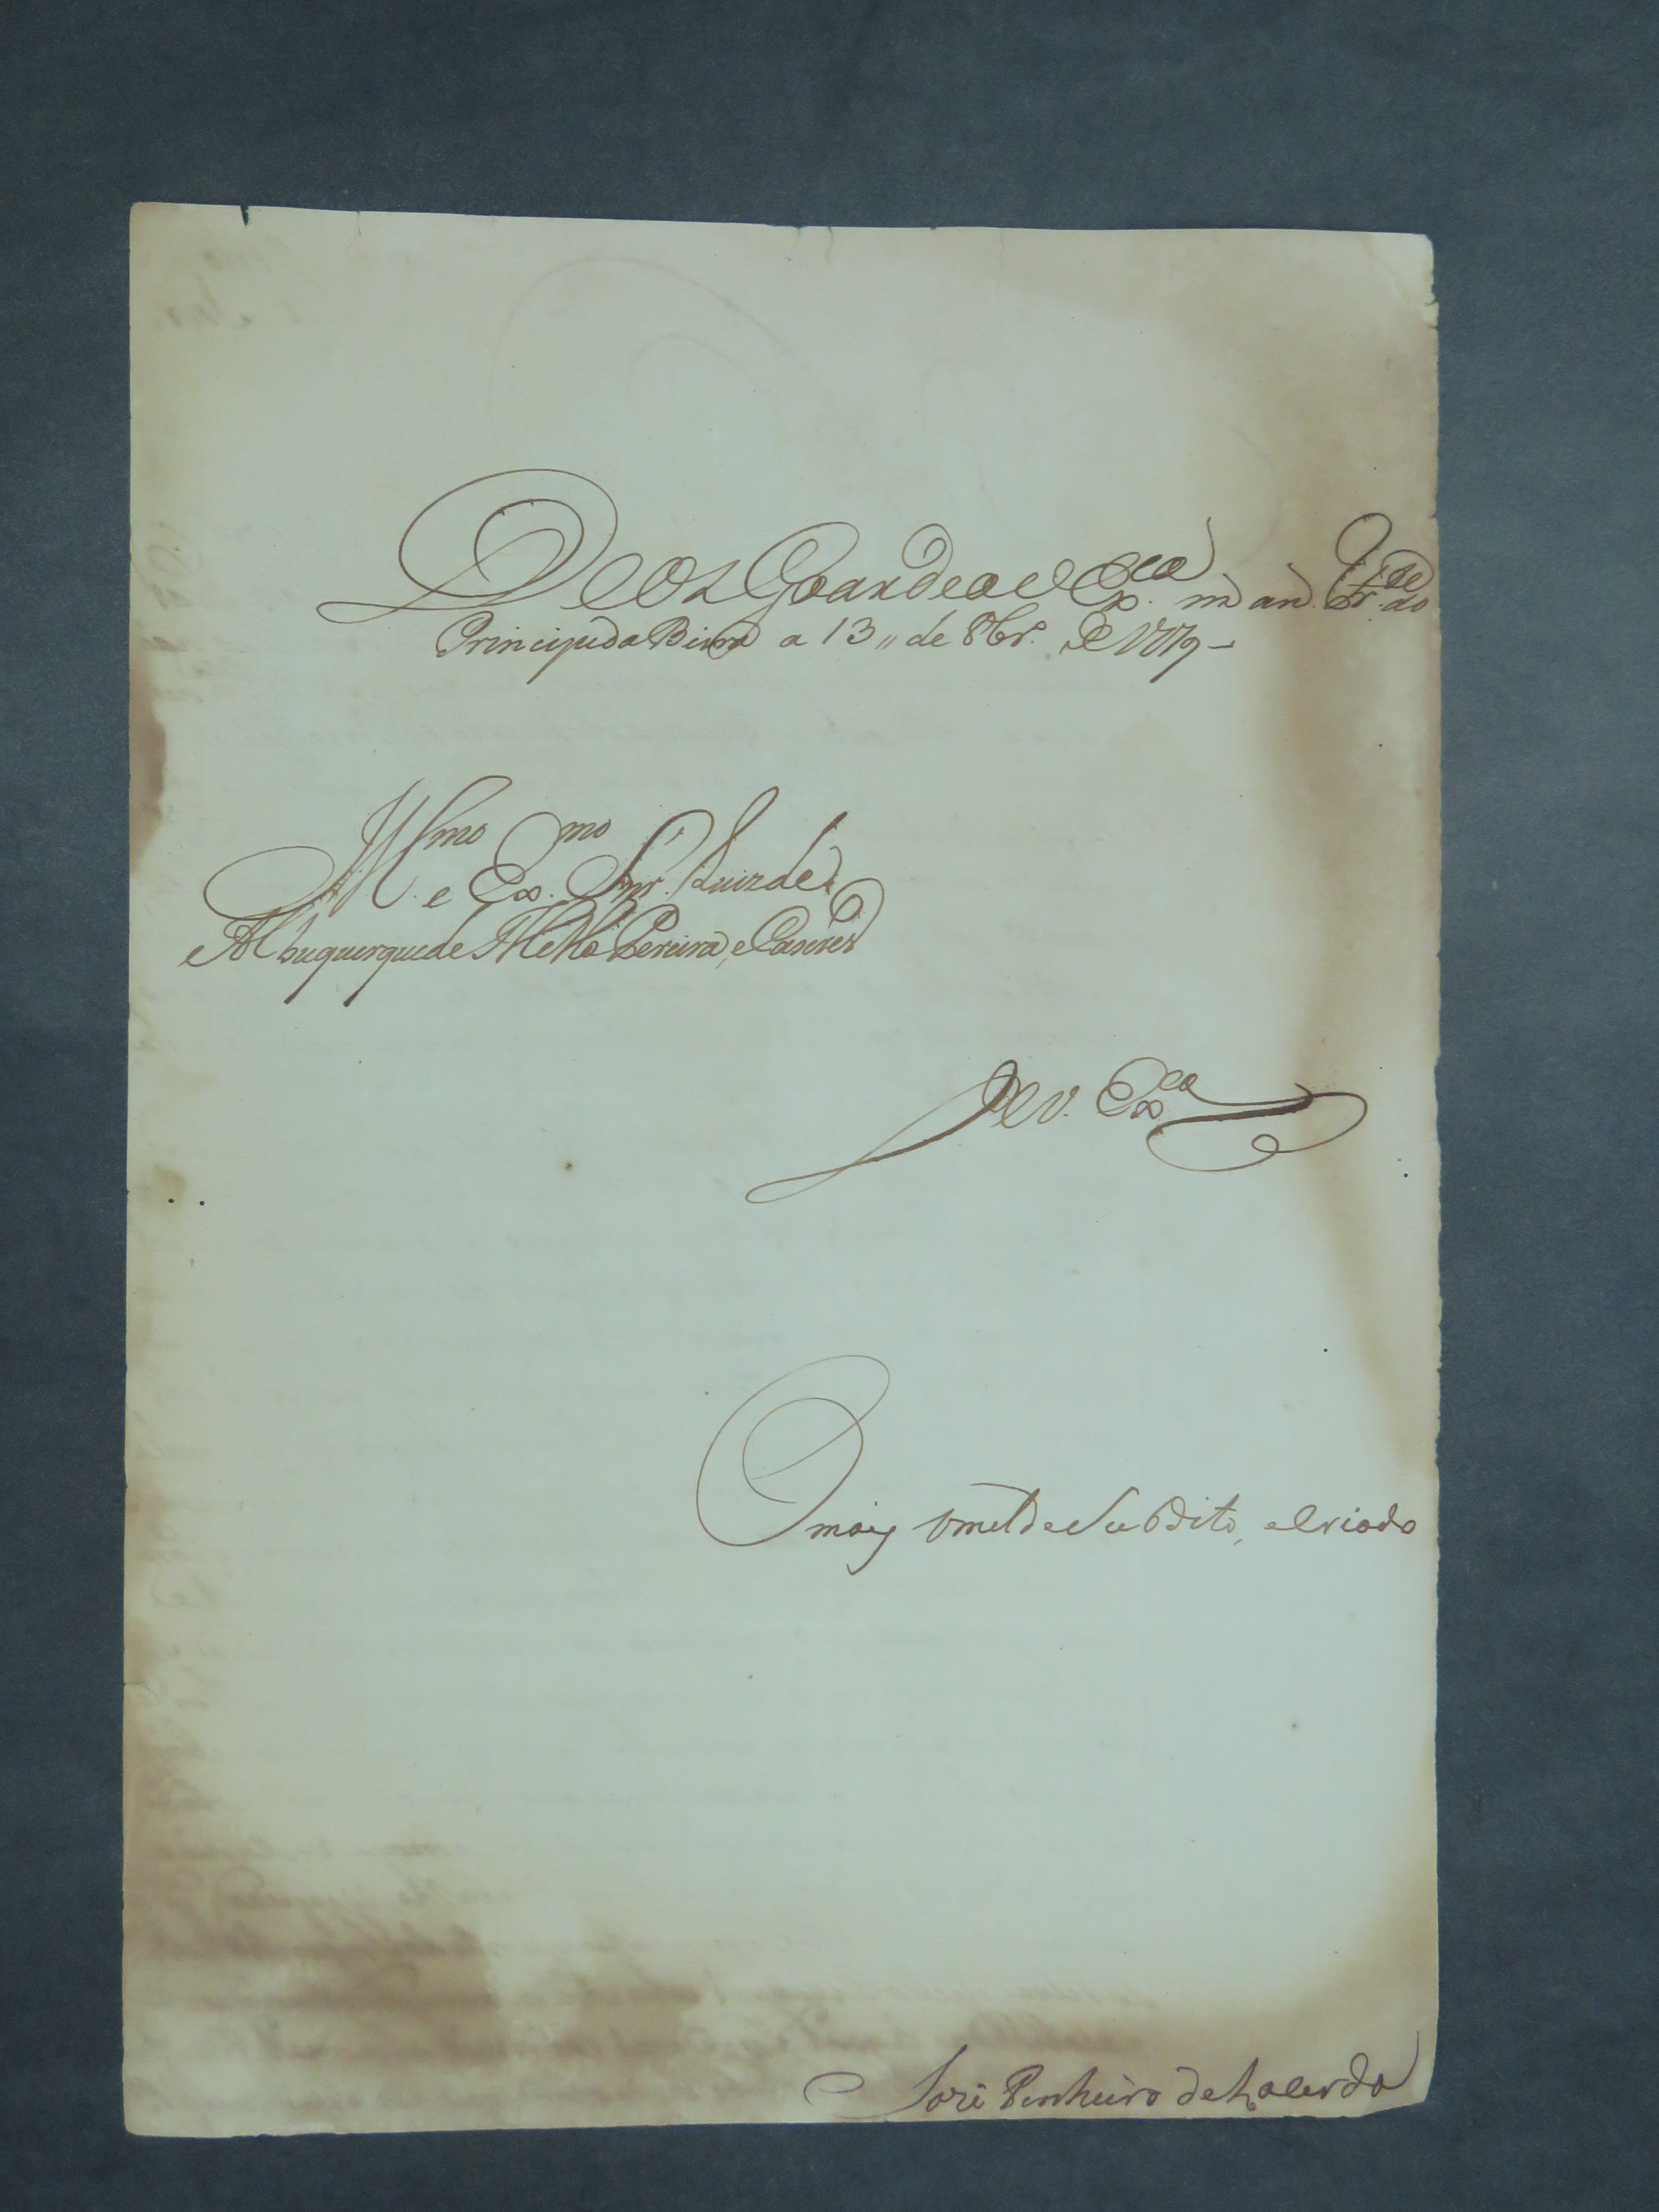 Deos Goarde a V Ex.cia m.s an.s Forte do
Principe da Beira a 13,, de 8br.º de 1779 –
Ill.mo e Ex.mo Snr. Luiz de
Albuquerque de Mello Pereira, e Caseres
De V. Ex.cia
O mais Umilde Subdito, e Criado
Jozé Pinheiro de Lacerda